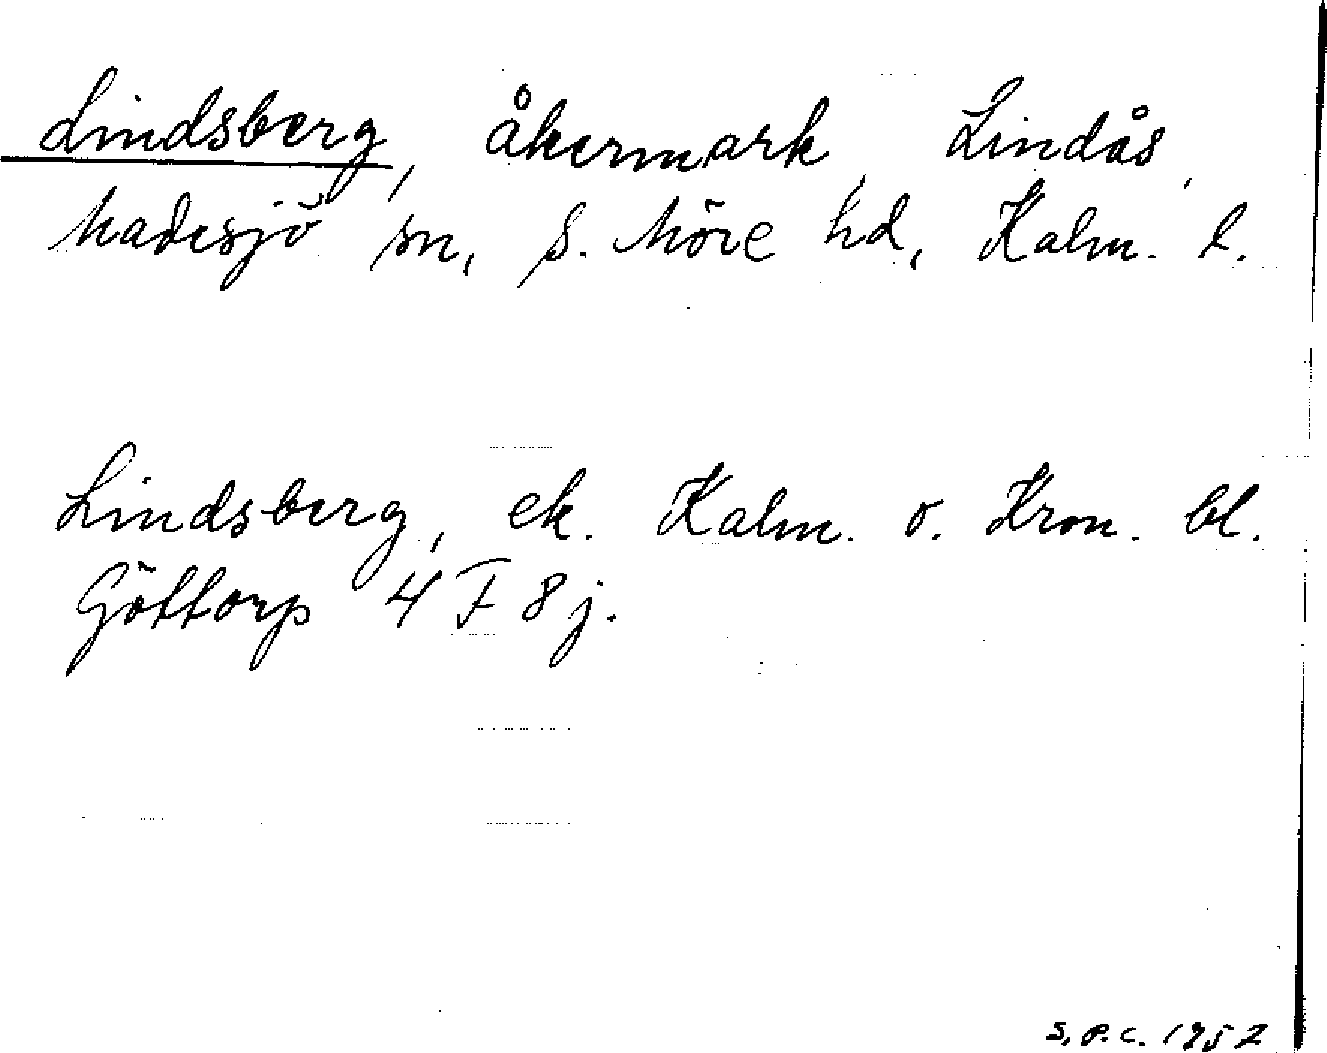 Lindsberg, åkermark, Lindås,
Madesjö sn, S. Möre hd, Kalm. l.
Lindsberg, ek. Kalm. o. Kron. bl.
Göttorp 4 F 8 j.
S. P. C. 1952